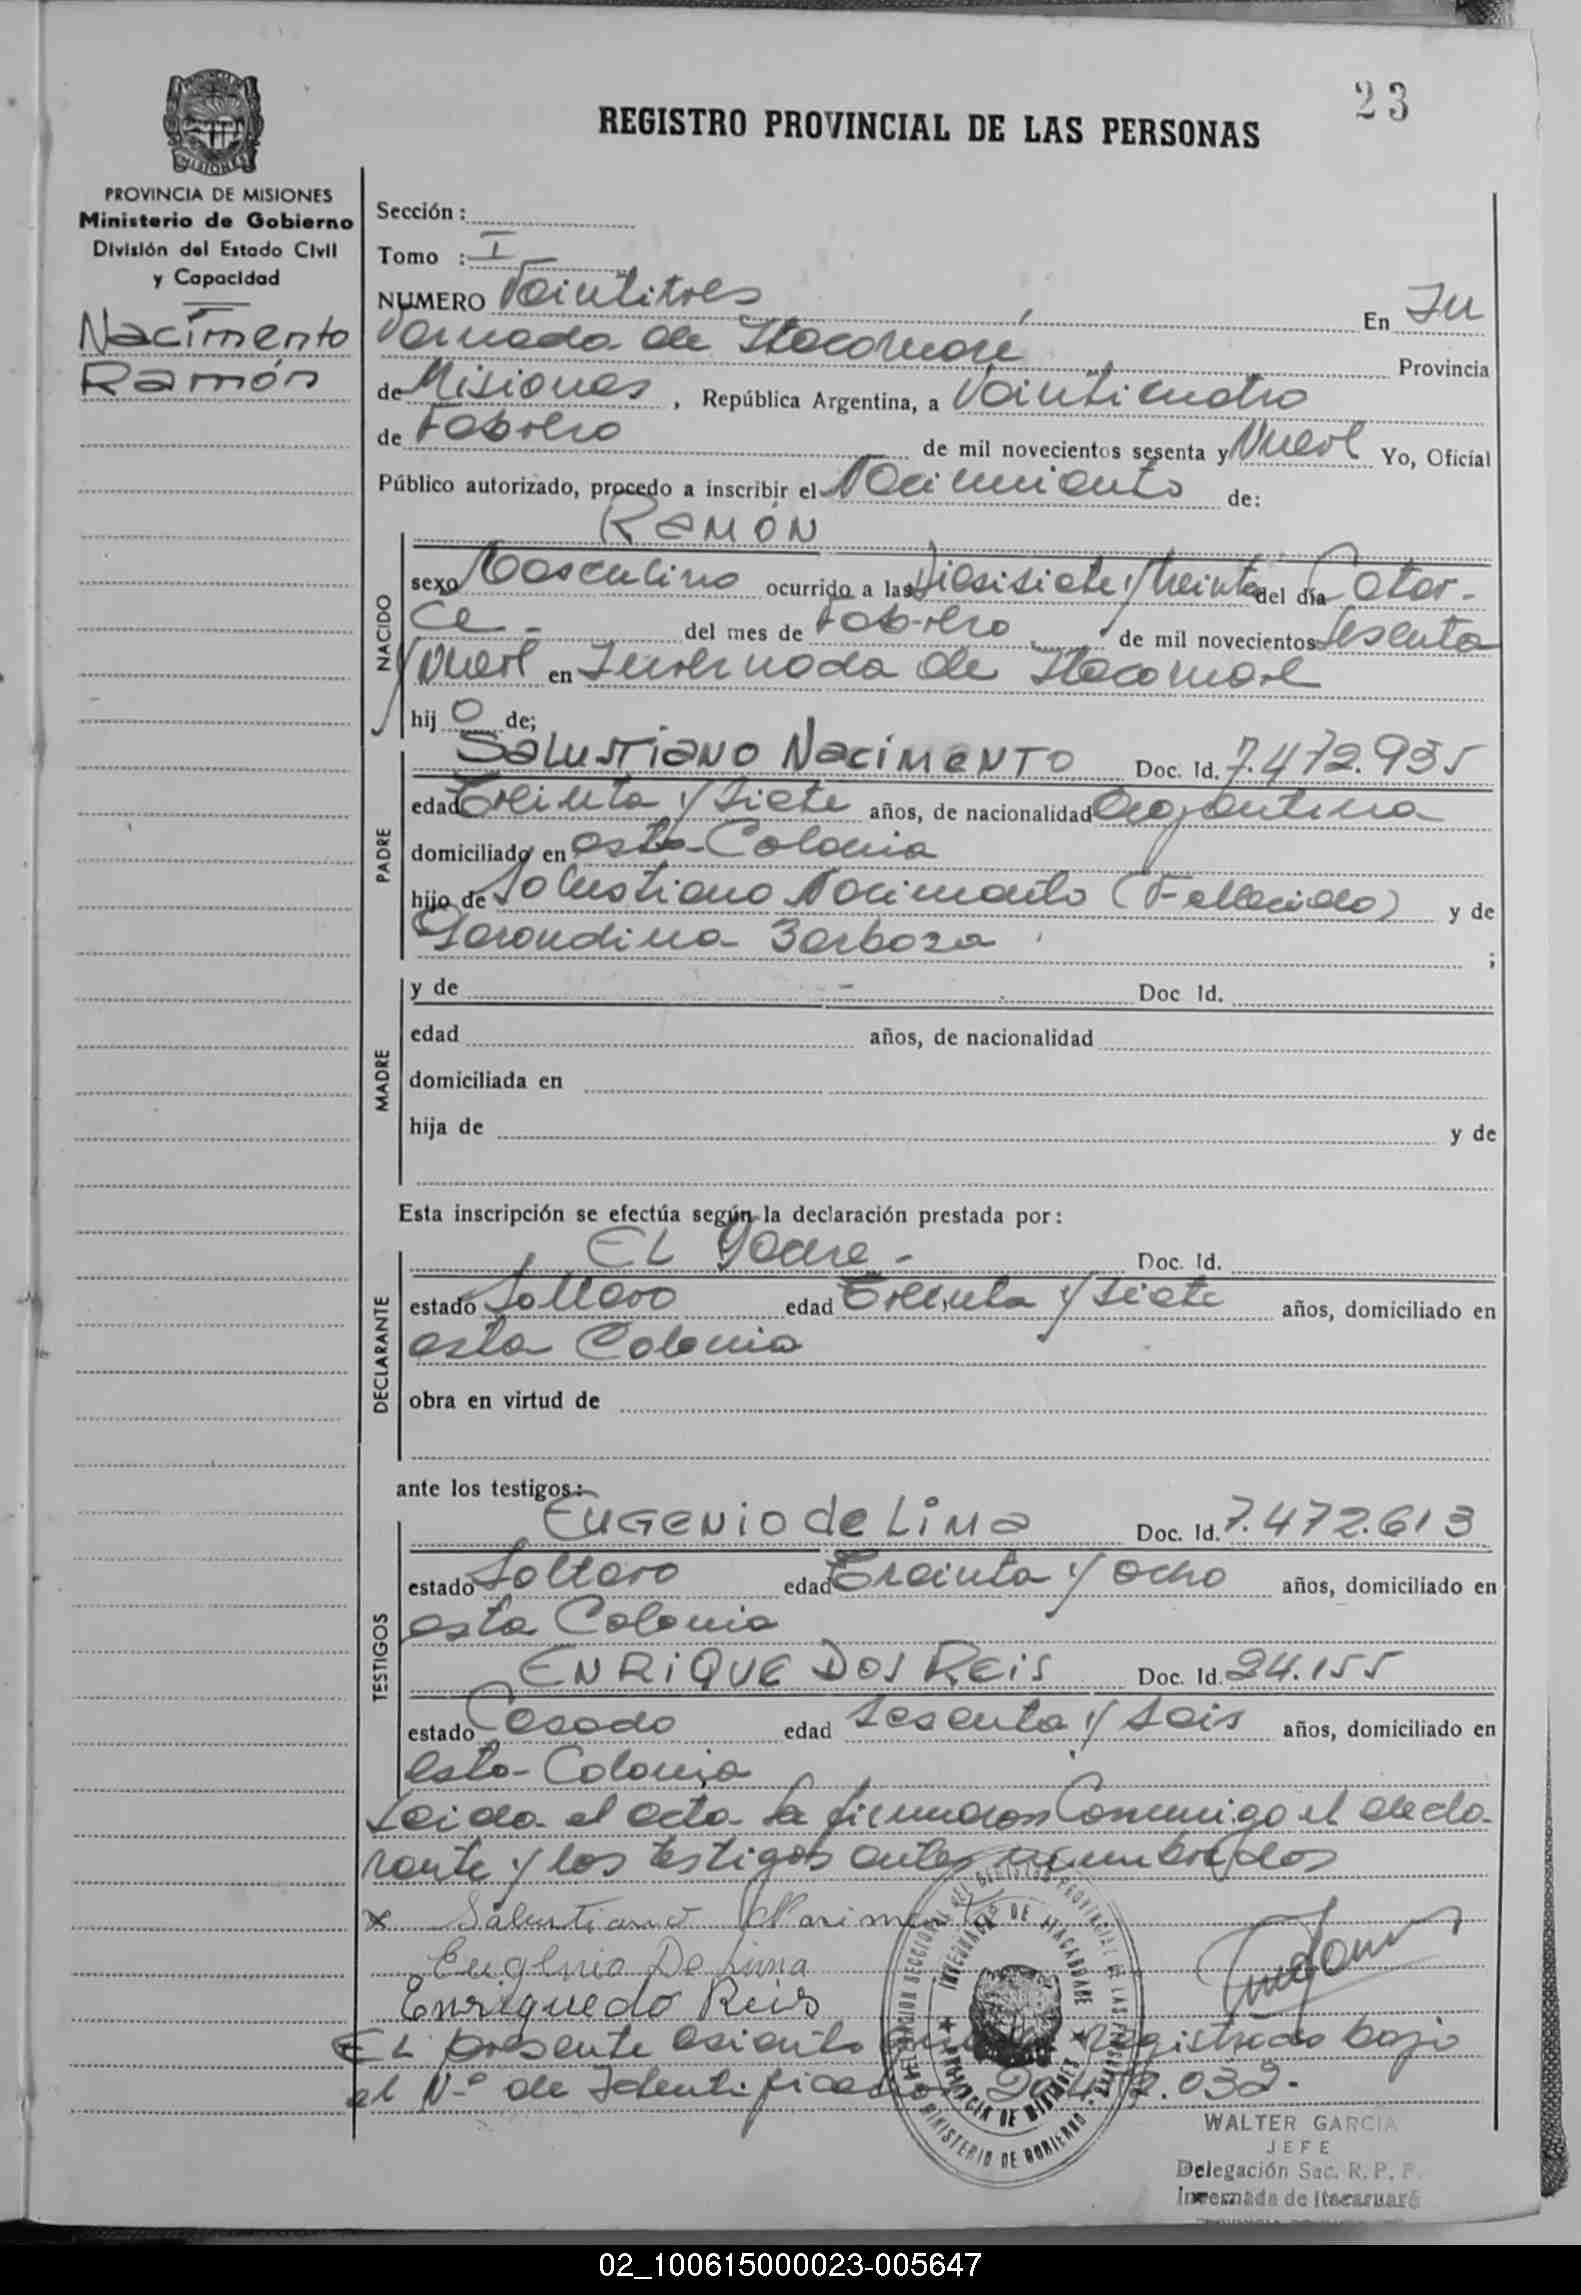 23
REGISTRO PROVINCIAL DE LAS PERSONAS
MISIONES
PROVINCIA DE MISIONES
Ministerio de Gobierno
División del Estado Civil
y Capacidad
Nacimento
Ramón
Sección :
Tomo : I
NUMERO Veintitres En In
vernada de Itacaruaré Provincia
de Misiones , República Argentina, a Veinticuatro
de Febrero de mil novecientos sesenta y Nueve Yo, Oficial
Público autorizado, procedo a inscribir el Nacimiento de:
RAMÓN
NACIDO
sexo Masculino ocurrido a las Diesisiete y treinta del día Cator-
ce - del mes de Febrero de mil novecientos Sesenta
y Nueve en Invernada de Itacaruare
hij o de;
Salustiano Nacimento Doc. Id. 7.472.935
PADRE
edad Treinta y siete años, de nacionalidad Argentina
domiciliado en esta Colonia
hijo de Salustiano Nacimento (Fallecido) y de
Garondina Barboza ;
MADRE
y de - Doc Id.
edad años, de nacionalidad
domiciliada en
hija de y de
Esta inscripción se efectúa según la declaración prestada por:
DECLARANTE
EL Padre - Doc. Id.
estado Soltero edad Treinta y siete años, domiciliado en
esta Colonia
obra en virtud de
ante los testigos:
TESTIGOS
EUGENIO de LIMA Doc. Id. 7.472.613
estado Soltero edad Treinta y ocho años, domiciliado en
esta Colonia
ENRIQUE DOS REIS Doc. Id. 24.155
estado Casado edad Sesenta y seis años, domiciliado en
esta Colonia
Leida el acta la firmaron Conmigo el decla-
rante y los testigos antes nombrados
x Salustiano Nacimento
Eugenio De Lima
Enrique do Reis
EL presente asiento registrado bajo
el Nº de Identificación 20.032.-
WALTER GARCIA
JEFE
Delegación Sec. R. P. P.
Invernada de Itacaruaré
02_100615000023-005647